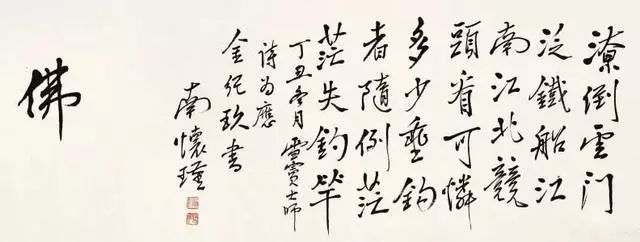 潦倒雲門
泛鐵船江
南江北競
頭看可憐
多少垂鈎
者隨例茫
茫失釣竿
丁丑冬月雪竇大師
詩為應
金紀玖書
南懷瑾
佛